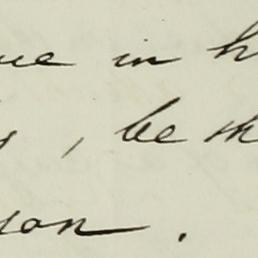 ue in h
, be sh
son.